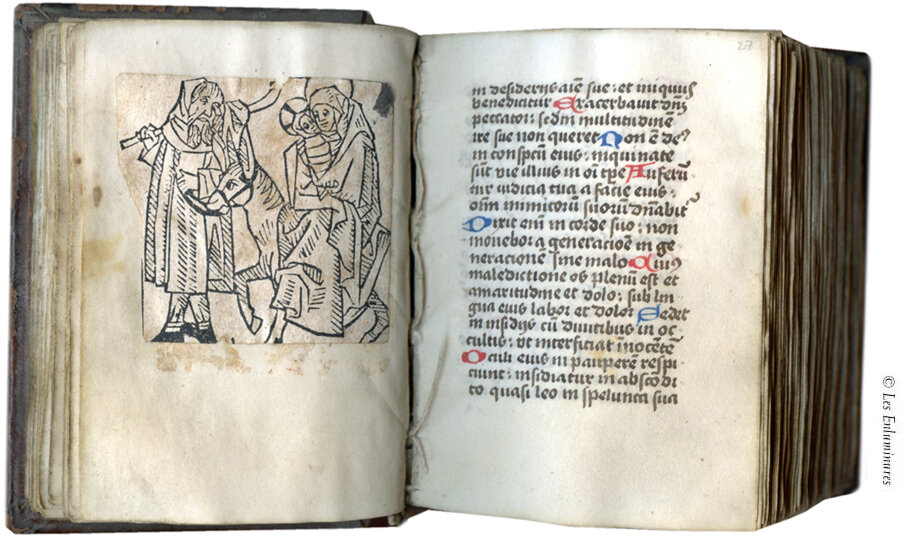 27
in desiderijs aīe sue: et iniquus
benedicitur Exacerbavit dn̄s
peccator: sedm multitudinē
ire sue non queret Non ē deꝰ
in conspctu eius: inquinate
sūt vie illius in oī tp̄e Auferū
tur iudicia tua a facie eius:
oīm inimicorū suorū dn̄abit᷑
Dixit eīm in corde suo: non
movebor a generacioē in ge
neracionē sine malo Cuiꝰ
maledictione os plenū est et
amaritudine et dolo: sub lin
gua eius labor et dolor Sedet
in insidijs cū divitibus in oc
cultis: vt interficiat īnocētē
Oculi eius in pauperē respi
ciunt: insidiatur in abscōdi
to quasi leo in spelunca sua
© Les Enluminures